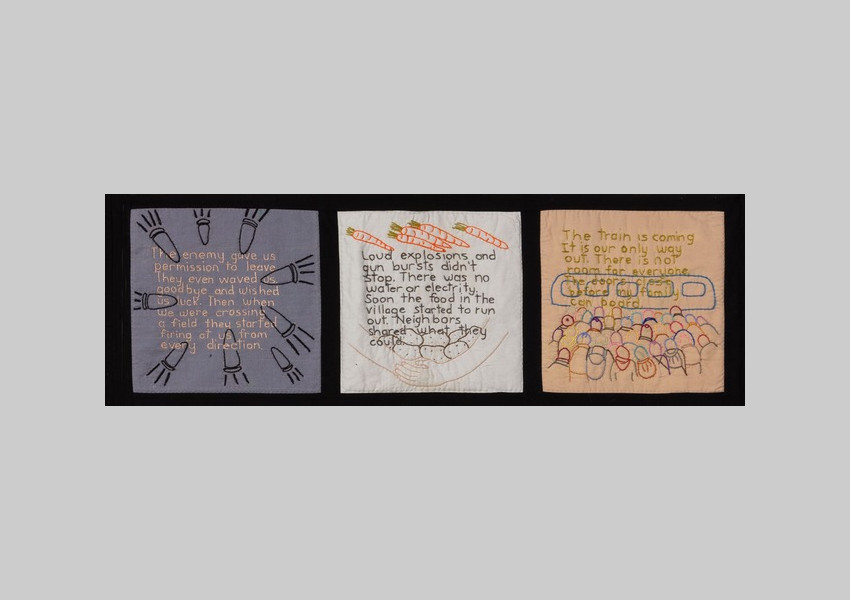 The enemy gave us
permission to leave
They even waved us
goodbye and wished
us luck. Then when
we were crossing
a field they started
firing at us from
every direction.
Loud explosions and
gun bursts didn't
stop. There was no
water or electrity.
Soon the food in the
village started to run
out. Neighbors
shared what they
could.
The train is coming
It is our only way
out. There is not
room for everyone
The doors close
before my family
can board.